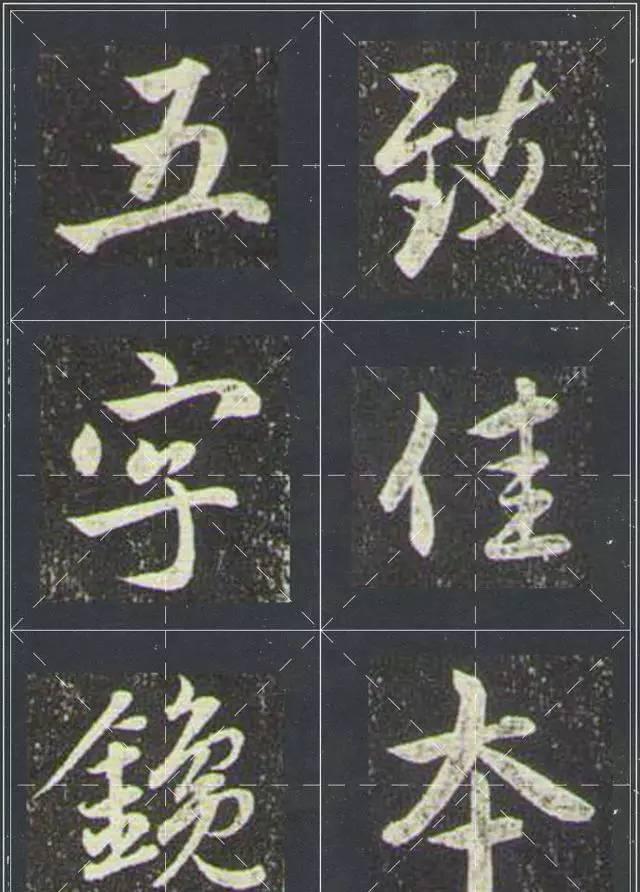 致佳本
五字鑱